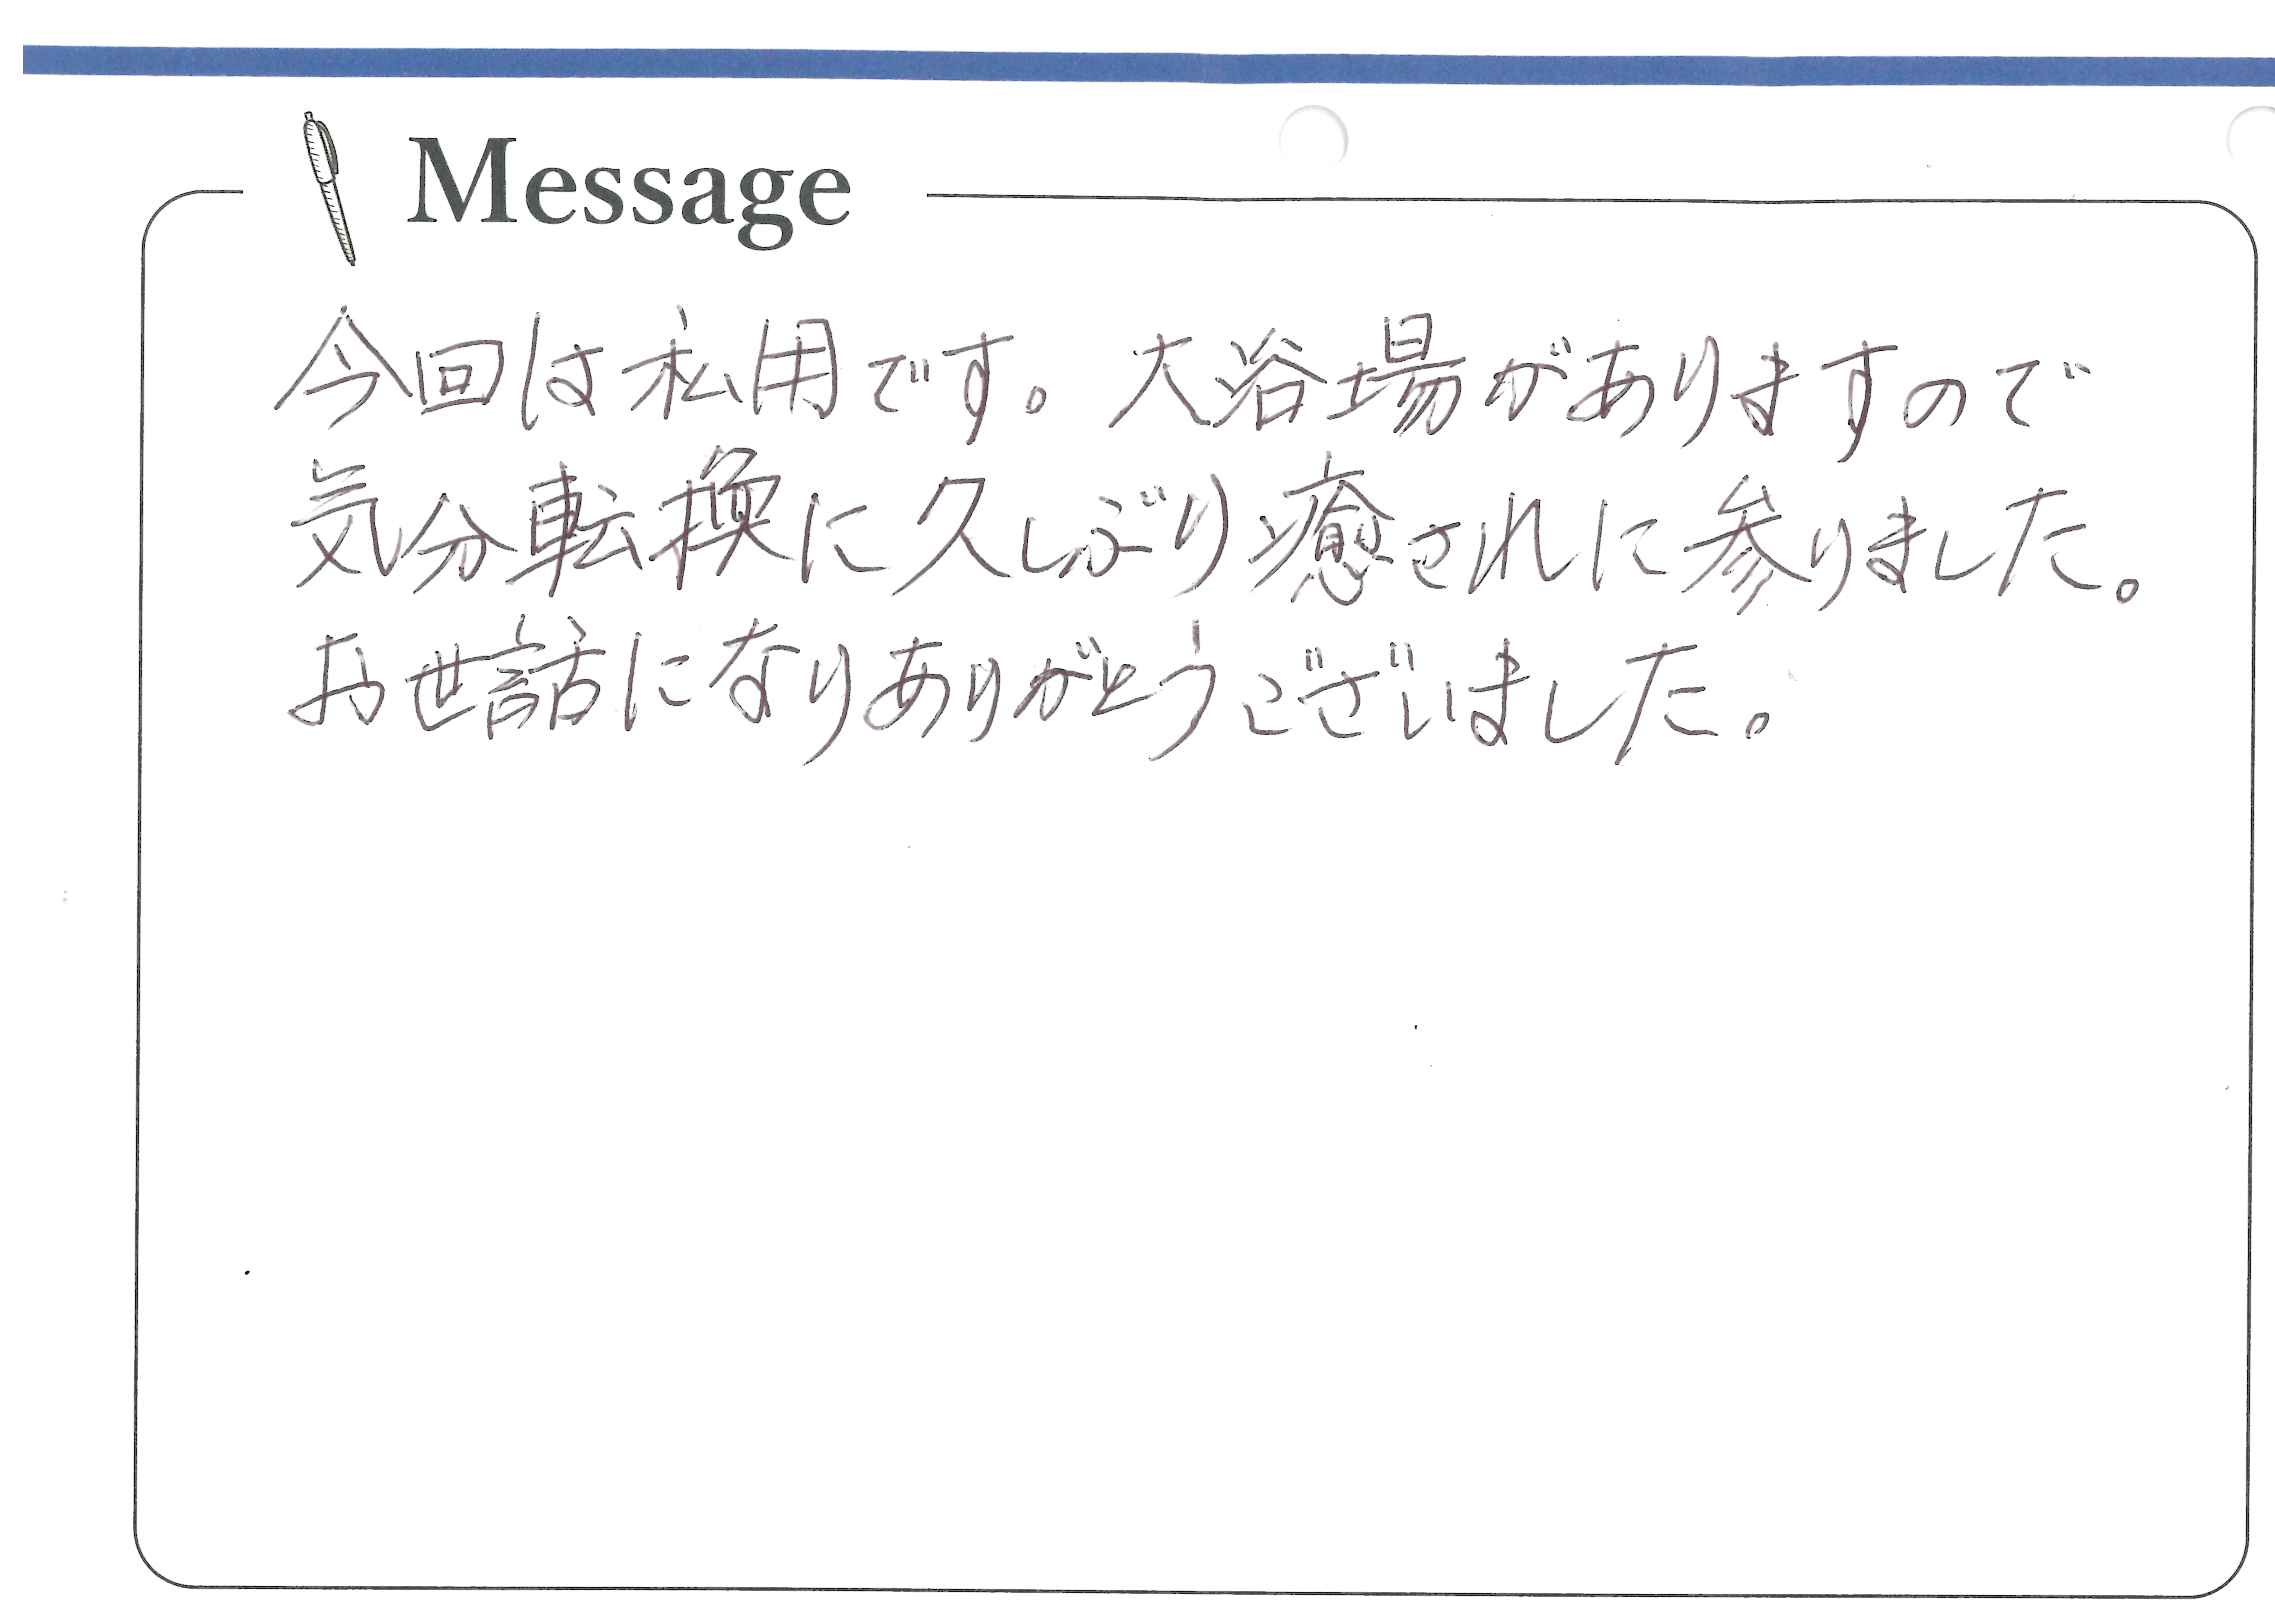 Message
今回は私用です。大浴場がありますので
気分転換に久しぶり癒されに参りました。
お世話になりありがとうございました。